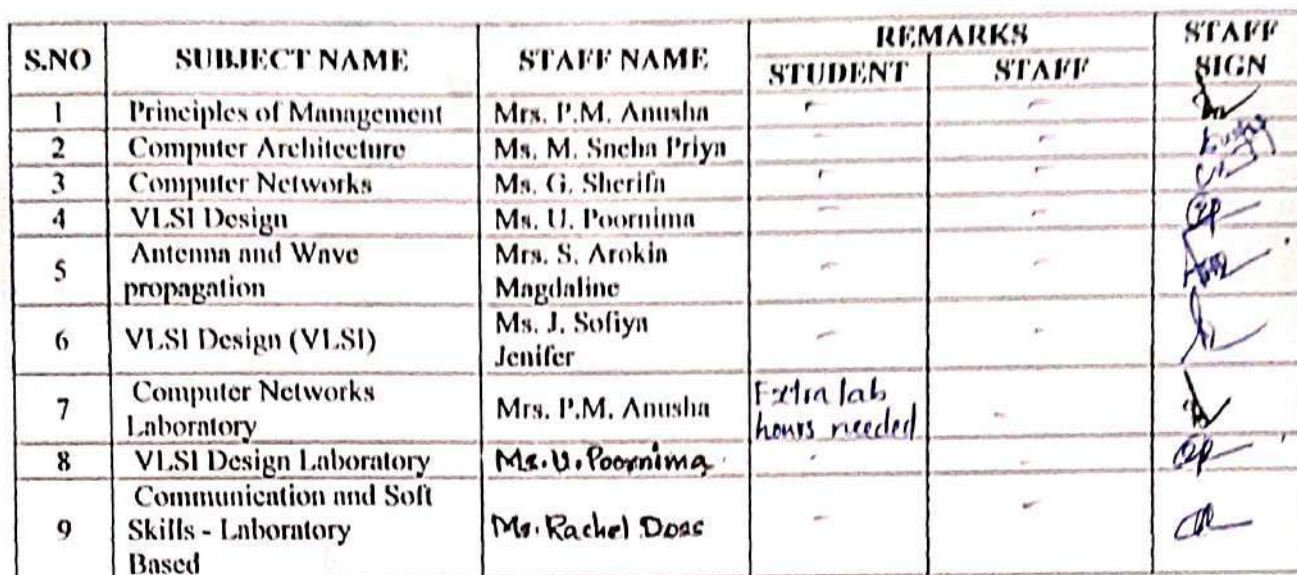 S.NO SUBJECT NAME STAFF NAME REMARKS STAFF SIGN
STUDENT STAFF
1 Principles of Management Mrs. P.M. Anusha - -
2 Computer Architecture Ms. M. Sneha Priya - -
3 Computer Networks Ms. G. Sherifa - -
4 VLSI Design Ms. U. Poornima - -
5 Antenna and Wave Mrs. S. Arokia - -
propagation Magdaline
6 VLSI Design (VLSI) Ms. J. Sofiya - -
Jenifer
7 Computer Networks Mrs. P.M. Anusha Extra lab -
Laboratory hours needed
8 VLSI Design Laboratory Ms. U. Poornima - -
Communication and Soft
9 Skills - Laboratory Ms. Rachel Doss - -
Based